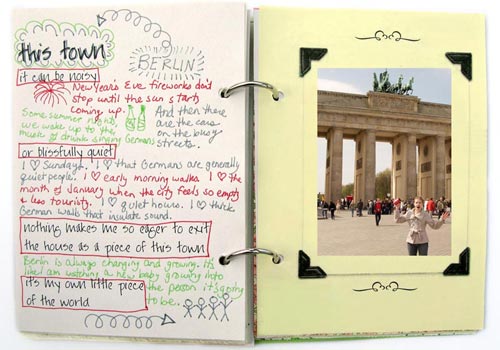 this town
BERLIN
it can be noisy
New Year's Eve fireworks don't
stop until the sun starts
coming up. And then there
are the cars
on the busy
streets.
Some summer nights
we wake up to the
music of drunk singing Germans
or blissfully quiet
I ♡ Sundays. I ♡ that Germans are generally
quiet people. I ♡ early morning walks. I ♡ the
month of January when the city feels so empty
& less touristy. I ♡ quiet hours. I ♡ thick
German walls that insulate sound.
nothing makes me so eager to exit
the house as a piece of this town
Berlin is always changing and growing. It's
like I am watching a new baby growing into
the person it's going
to be.
it's my own little piece
of the world